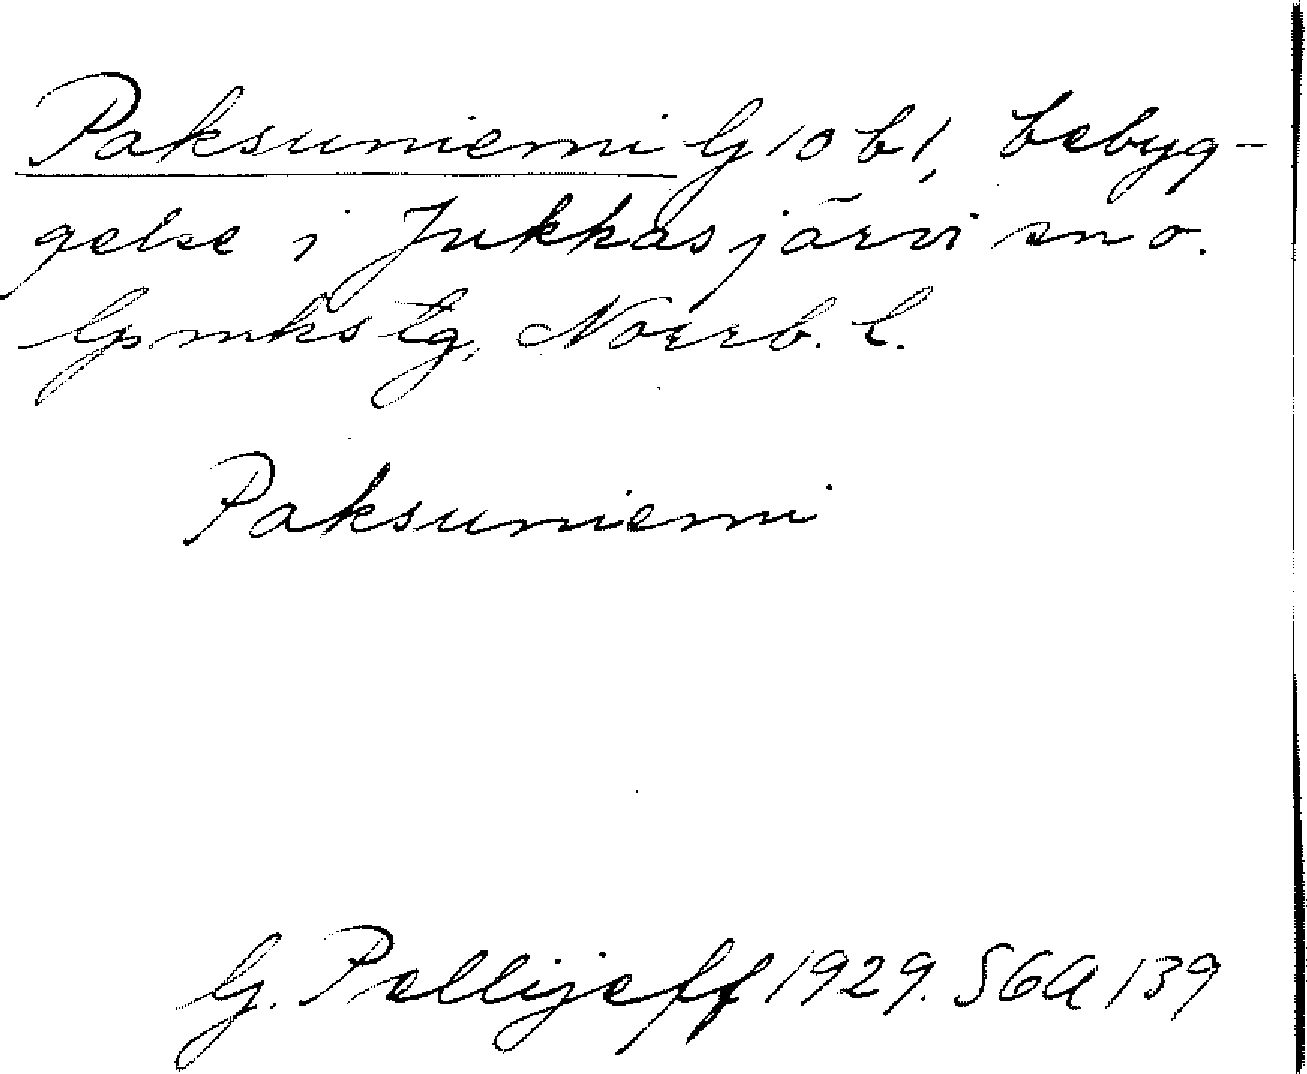 Paksuniemi G 10 b 1, bebyg-
gelse i Jukkasjärvi sn o.
lpmkstg, Norrb. l.
Paksuniemi
G. Pellijeff 1929. SGA 139